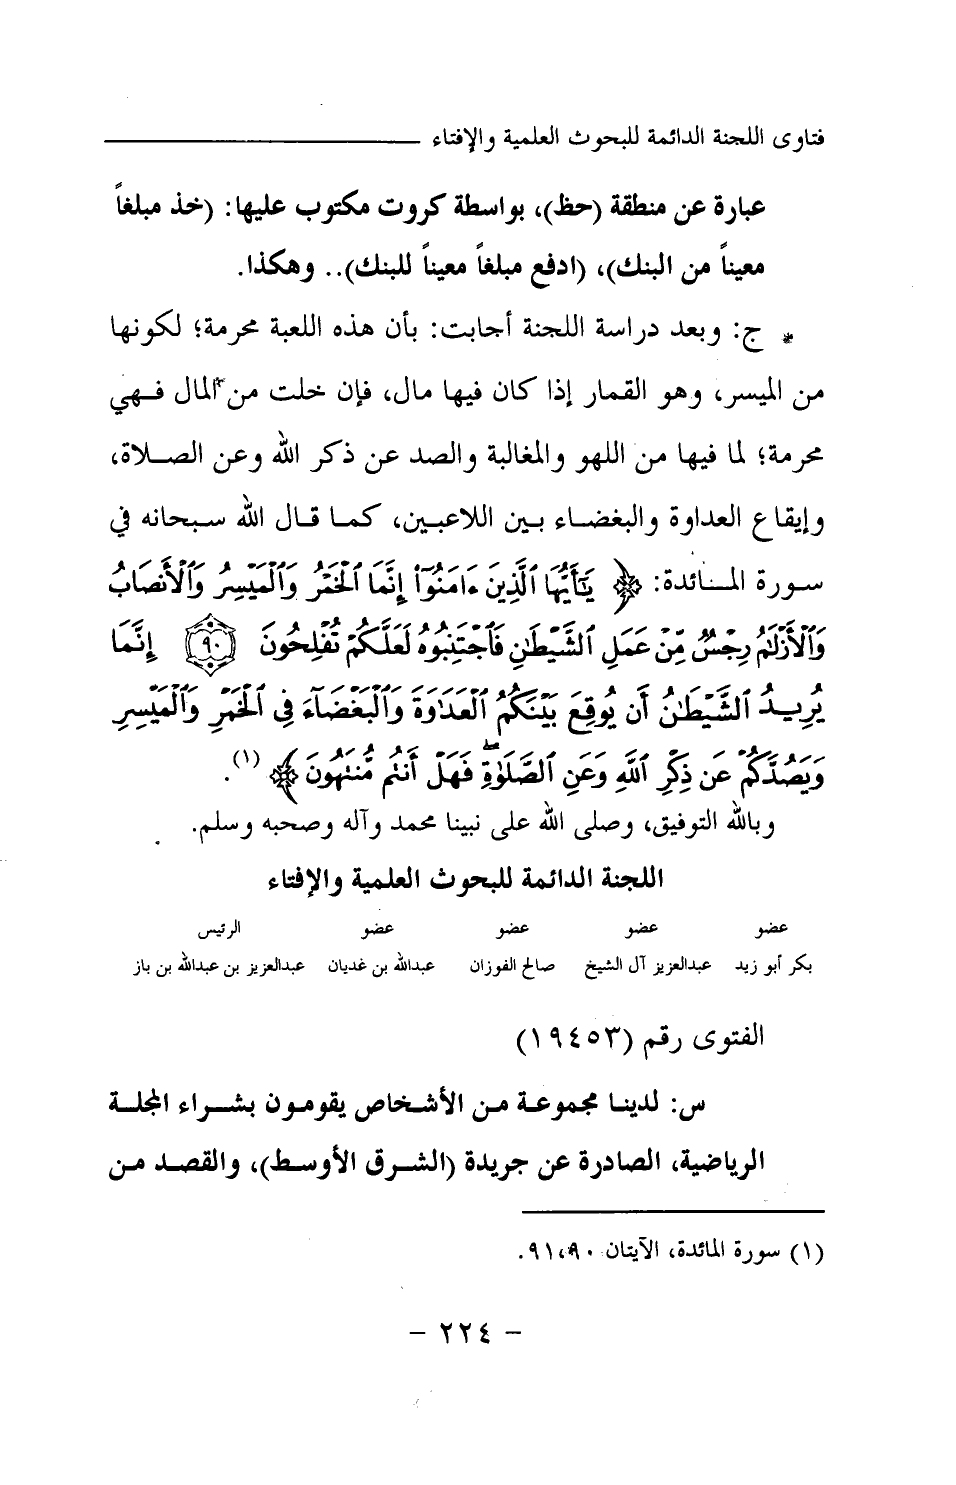 فتاوى اللجنة الدائمة للبحوث العلمية والإفتاء
عبارة عن منطقة (حظ)، بواسطة كروت مكتوب عليها: (خذ مبلغاً
معيناً من البنك)، (ادفع مبلغاً معيناً للبنك).. وهكذا.
* ج: وبعد دراسة اللجنة أجابت: بأن هذه اللعبة محرمة؛ لكونها
من الميسر، وهو القمار إذا كان فيها مال، فإن خلت من المال فهي
محرمة؛ لما فيها من اللهو والمغالبة والصد عن ذكر الله وعن الصلاة،
وإيقاع العداوة والبغضاء بين اللاعبين، كما قال الله سبحانه في
سورة المائدة: ﴿ يَٰٓأَيُّهَا ٱلَّذِينَ ءَامَنُوٓا۟ إِنَّمَا ٱلْخَمْرُ وَٱلْمَيْسِرُ وَٱلْأَنصَابُ
وَٱلْأَزْلَٰمُ رِجْسٌ مِّنْ عَمَلِ ٱلشَّيْطَٰنِ فَٱجْتَنِبُوهُ لَعَلَّكُمْ تُفْلِحُونَ ۝٩٠ إِنَّمَا
يُرِيدُ ٱلشَّيْطَٰنُ أَن يُوقِعَ بَيْنَكُمُ ٱلْعَدَٰوَةَ وَٱلْبَغْضَآءَ فِى ٱلْخَمْرِ وَٱلْمَيْسِرِ
وَيَصُدَّكُمْ عَن ذِكْرِ ٱللَّهِ وَعَنِ ٱلصَّلَوٰةِ ۖ فَهَلْ أَنتُم مُّنتَهُونَ ﴾ (١).
وبالله التوفيق، وصلى الله على نبينا محمد وآله وصحبه وسلم.
اللجنة الدائمة للبحوث العلمية والإفتاء
عضو عضو عضو عضو الرئيس
بكر أبو زيد عبدالعزيز آل الشيخ صالح الفوزان عبدالله بن غديان عبدالعزيز بن عبدالله بن باز
الفتوى رقم (١٩٤٥٣)
س: لدينا مجموعة من الأشخاص يقومون بشراء المجلة
الرياضية، الصادرة عن جريدة (الشرق الأوسط)، والقصد من
(١) سورة المائدة، الآيتان ٩٠، ٩١.
- ٢٢٤ -